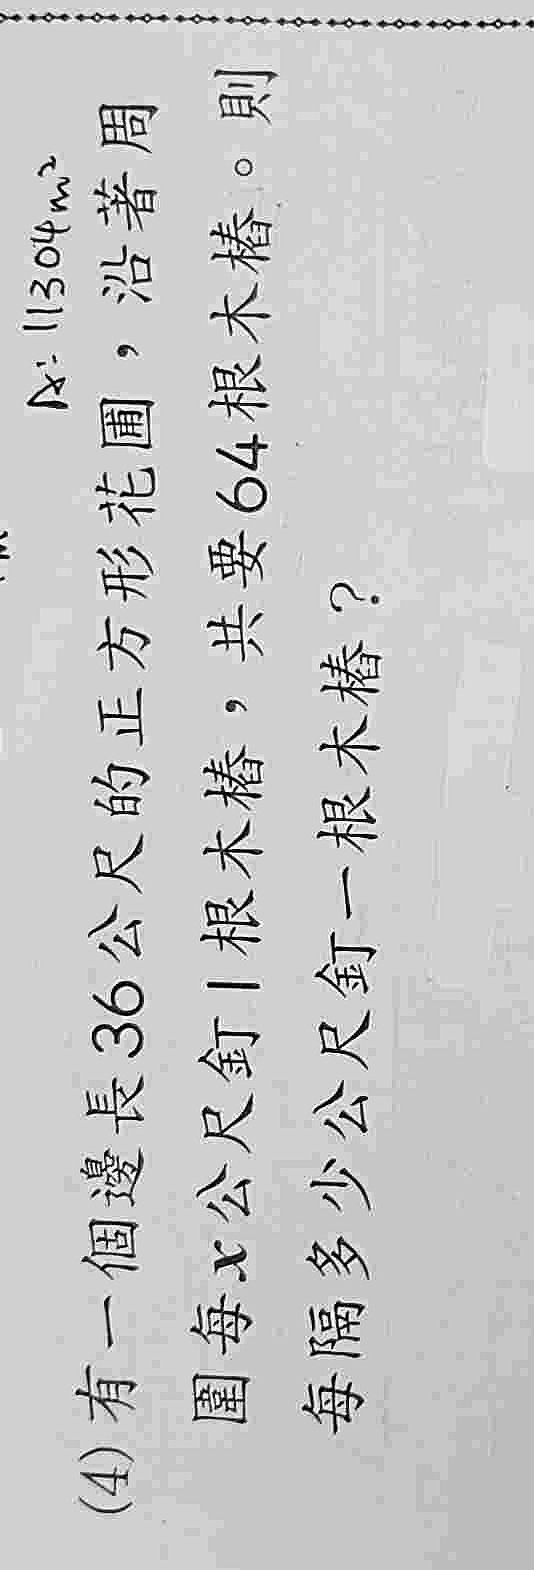 A: 11304m²
(4) 有一個邊長36公尺的正方形花圃，沿著周
圍每x公尺釘1根木樁，共要64根木樁。則
每隔多少公尺釘一根木樁？